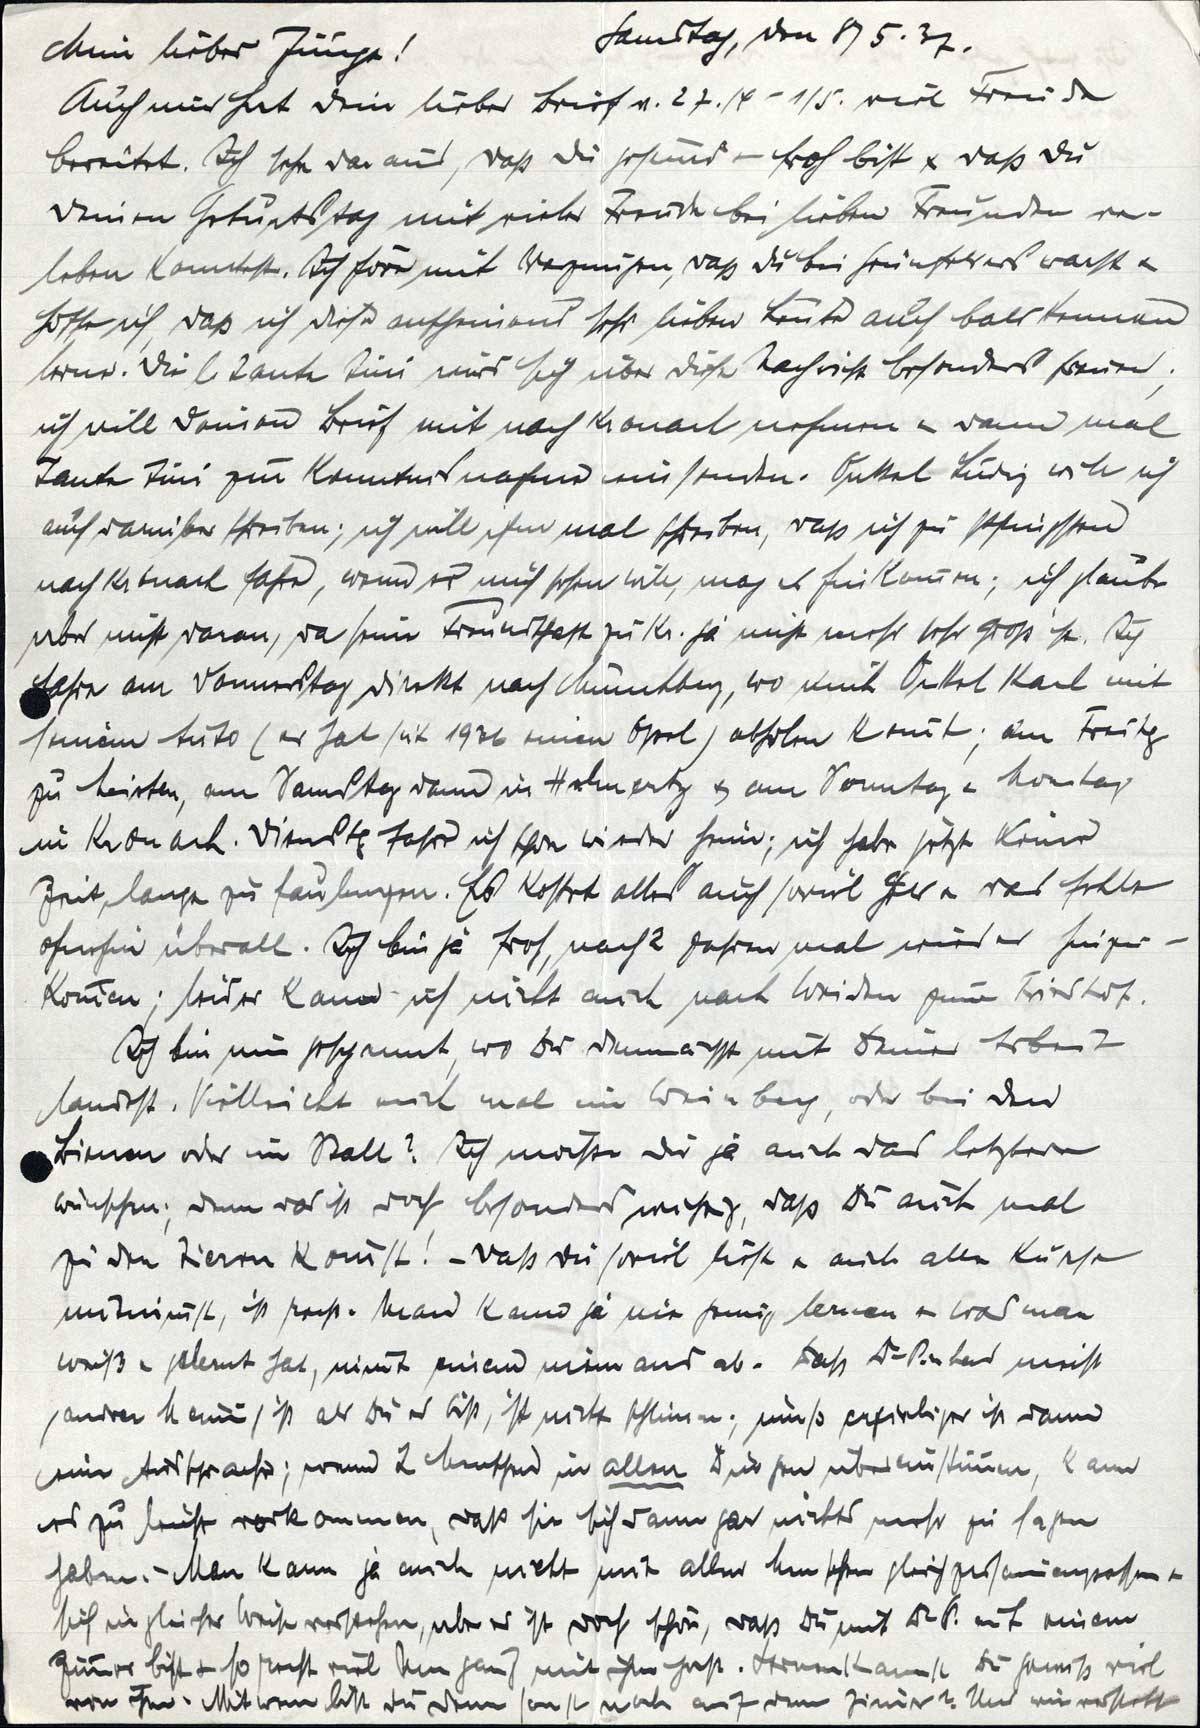 Mein lieber Junge! Samstag, den 8/5.37.
Auch mir hat Dein lieber Brief v. 27./4 - 1/5. viel Freude
bereitet. Ich sehe daraus, daß Du gesund & froh bist & daß Du
Deinen Geburtstag mit vieler Freude bei lieben Freunden ver-
leben konntest. Ich höre mit Vergnügen, daß Du bei warst &
hoffe ich, daß ich diese anscheinend sehr lieben Leute auch bald kennen
lerne. Die l. Tante Tini wird sich über diese Nachricht besonders freuen;
ich will Deinen Brief mit nach Kronach nehmen & dann mal
Tante Tini zur Kenntnisnahme einsenden. Onkel Ludwig will ich
auch darüber schreiben; ich will ihm mal schreiben, daß ich zu Pfingsten
nach Kronach fahre, wenn er mich sehen will, mag er hinkommen; ich glaube
aber nicht daran, da seine Freundschaft zu Kr. ja nicht mehr sehr groß ist. Ich
fahre am Donnerstag direkt nach Münchberg, wo mich Onkel Karl mit
seinem Auto (er hat seit 1936 einen Opel) abholen kommt; am Freitag
zu, am Samstag dann in & am Sonntag & Montag
in Kronach. Dienstg fahre ich schon wieder heim; ich habe jetzt keine
Zeit, lange zu faulenzen. Es kostet alles auch soviel Geld & das fehlt
ohnehin überall. Ich bin ja froh, nach 2 Jahren mal wieder hinzu-
kommen; leider kann ich nicht auch nach Weiden zum Friedhof.
Ich bin nun gespannt, wo Du demnächst mit Deiner Arbeit
landest. Vielleicht auch mal im Weinberg, oder bei den
Bienen oder im Stall? Ich möchte Dir ja auch das letztere
wünschen; denn das ist doch besonders wichtig, daß Du auch mal
zu den Tieren kommst! - Daß Du soviel liest & auch alle Kurse
mitnimmst, ist recht. Man kann ja nie genug lernen & was man
weiß & gelernt hat, nimmt einem niemand ab. Daß meist
andrer Meinung ist als Du es bist, ist nicht schlimm; umso ergiebiger ist dann
eine Aussprache; wenn 2 Menschen in allen Dingen übereinstimmen, kann
es zu leicht vorkommen, daß sie sich dann gar nichts mehr zu sagen
haben. - Man kann ja auch nicht mit allen Menschen gleich zusammenpassen &
sich in gleicher Weise verstehen, aber es ist doch schön, daß Du mit D. P. auf einem
Zimmer bist & so recht viel Umgang mit ihm hast. Lernen kannst Du gewiss viel
von ihm. Mit wem bist Du denn sonst noch auf dem Zimmer? Und wie verstellt